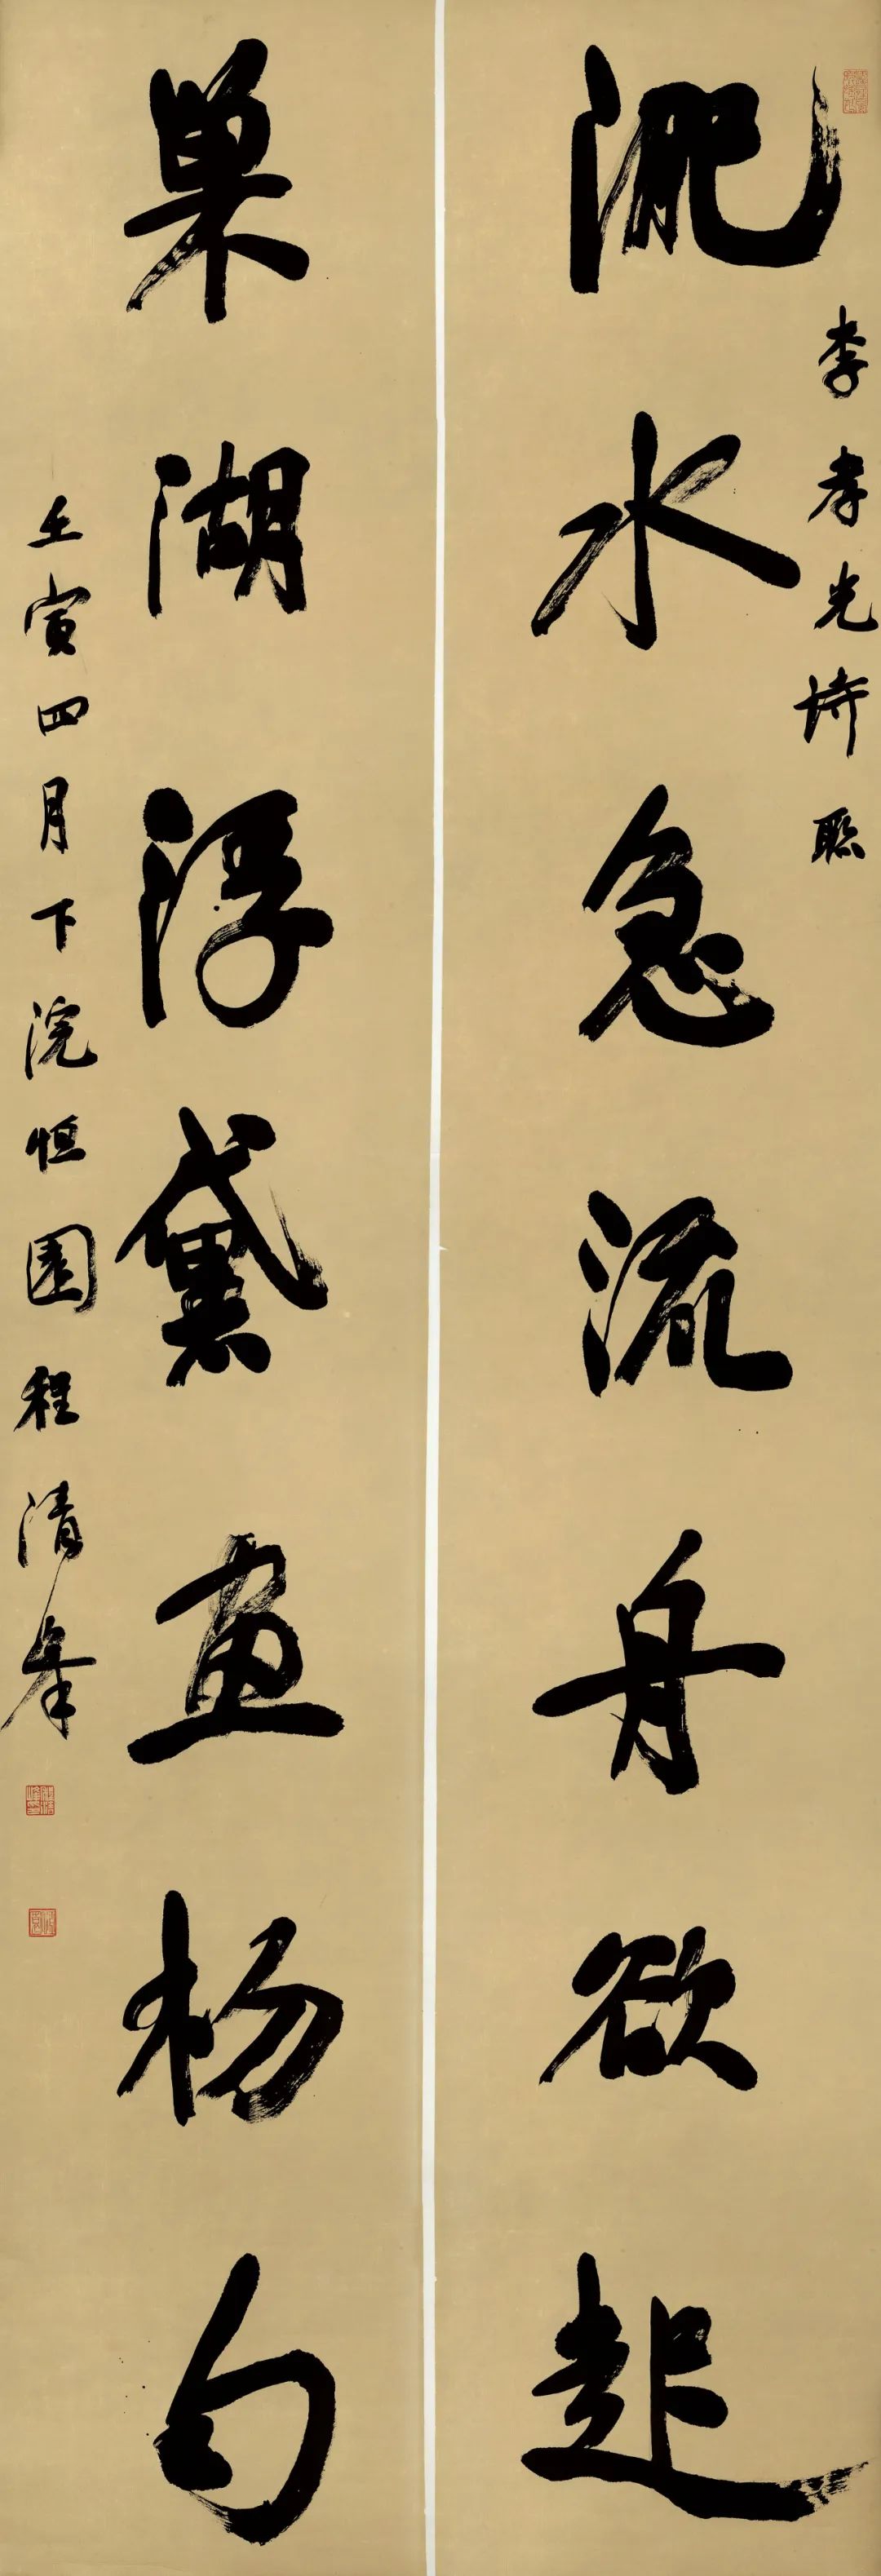 李孝光诗联
淝水急流舟欲起
巢湖浮黛画杨匀
壬寅四月下浣恒园程清峯